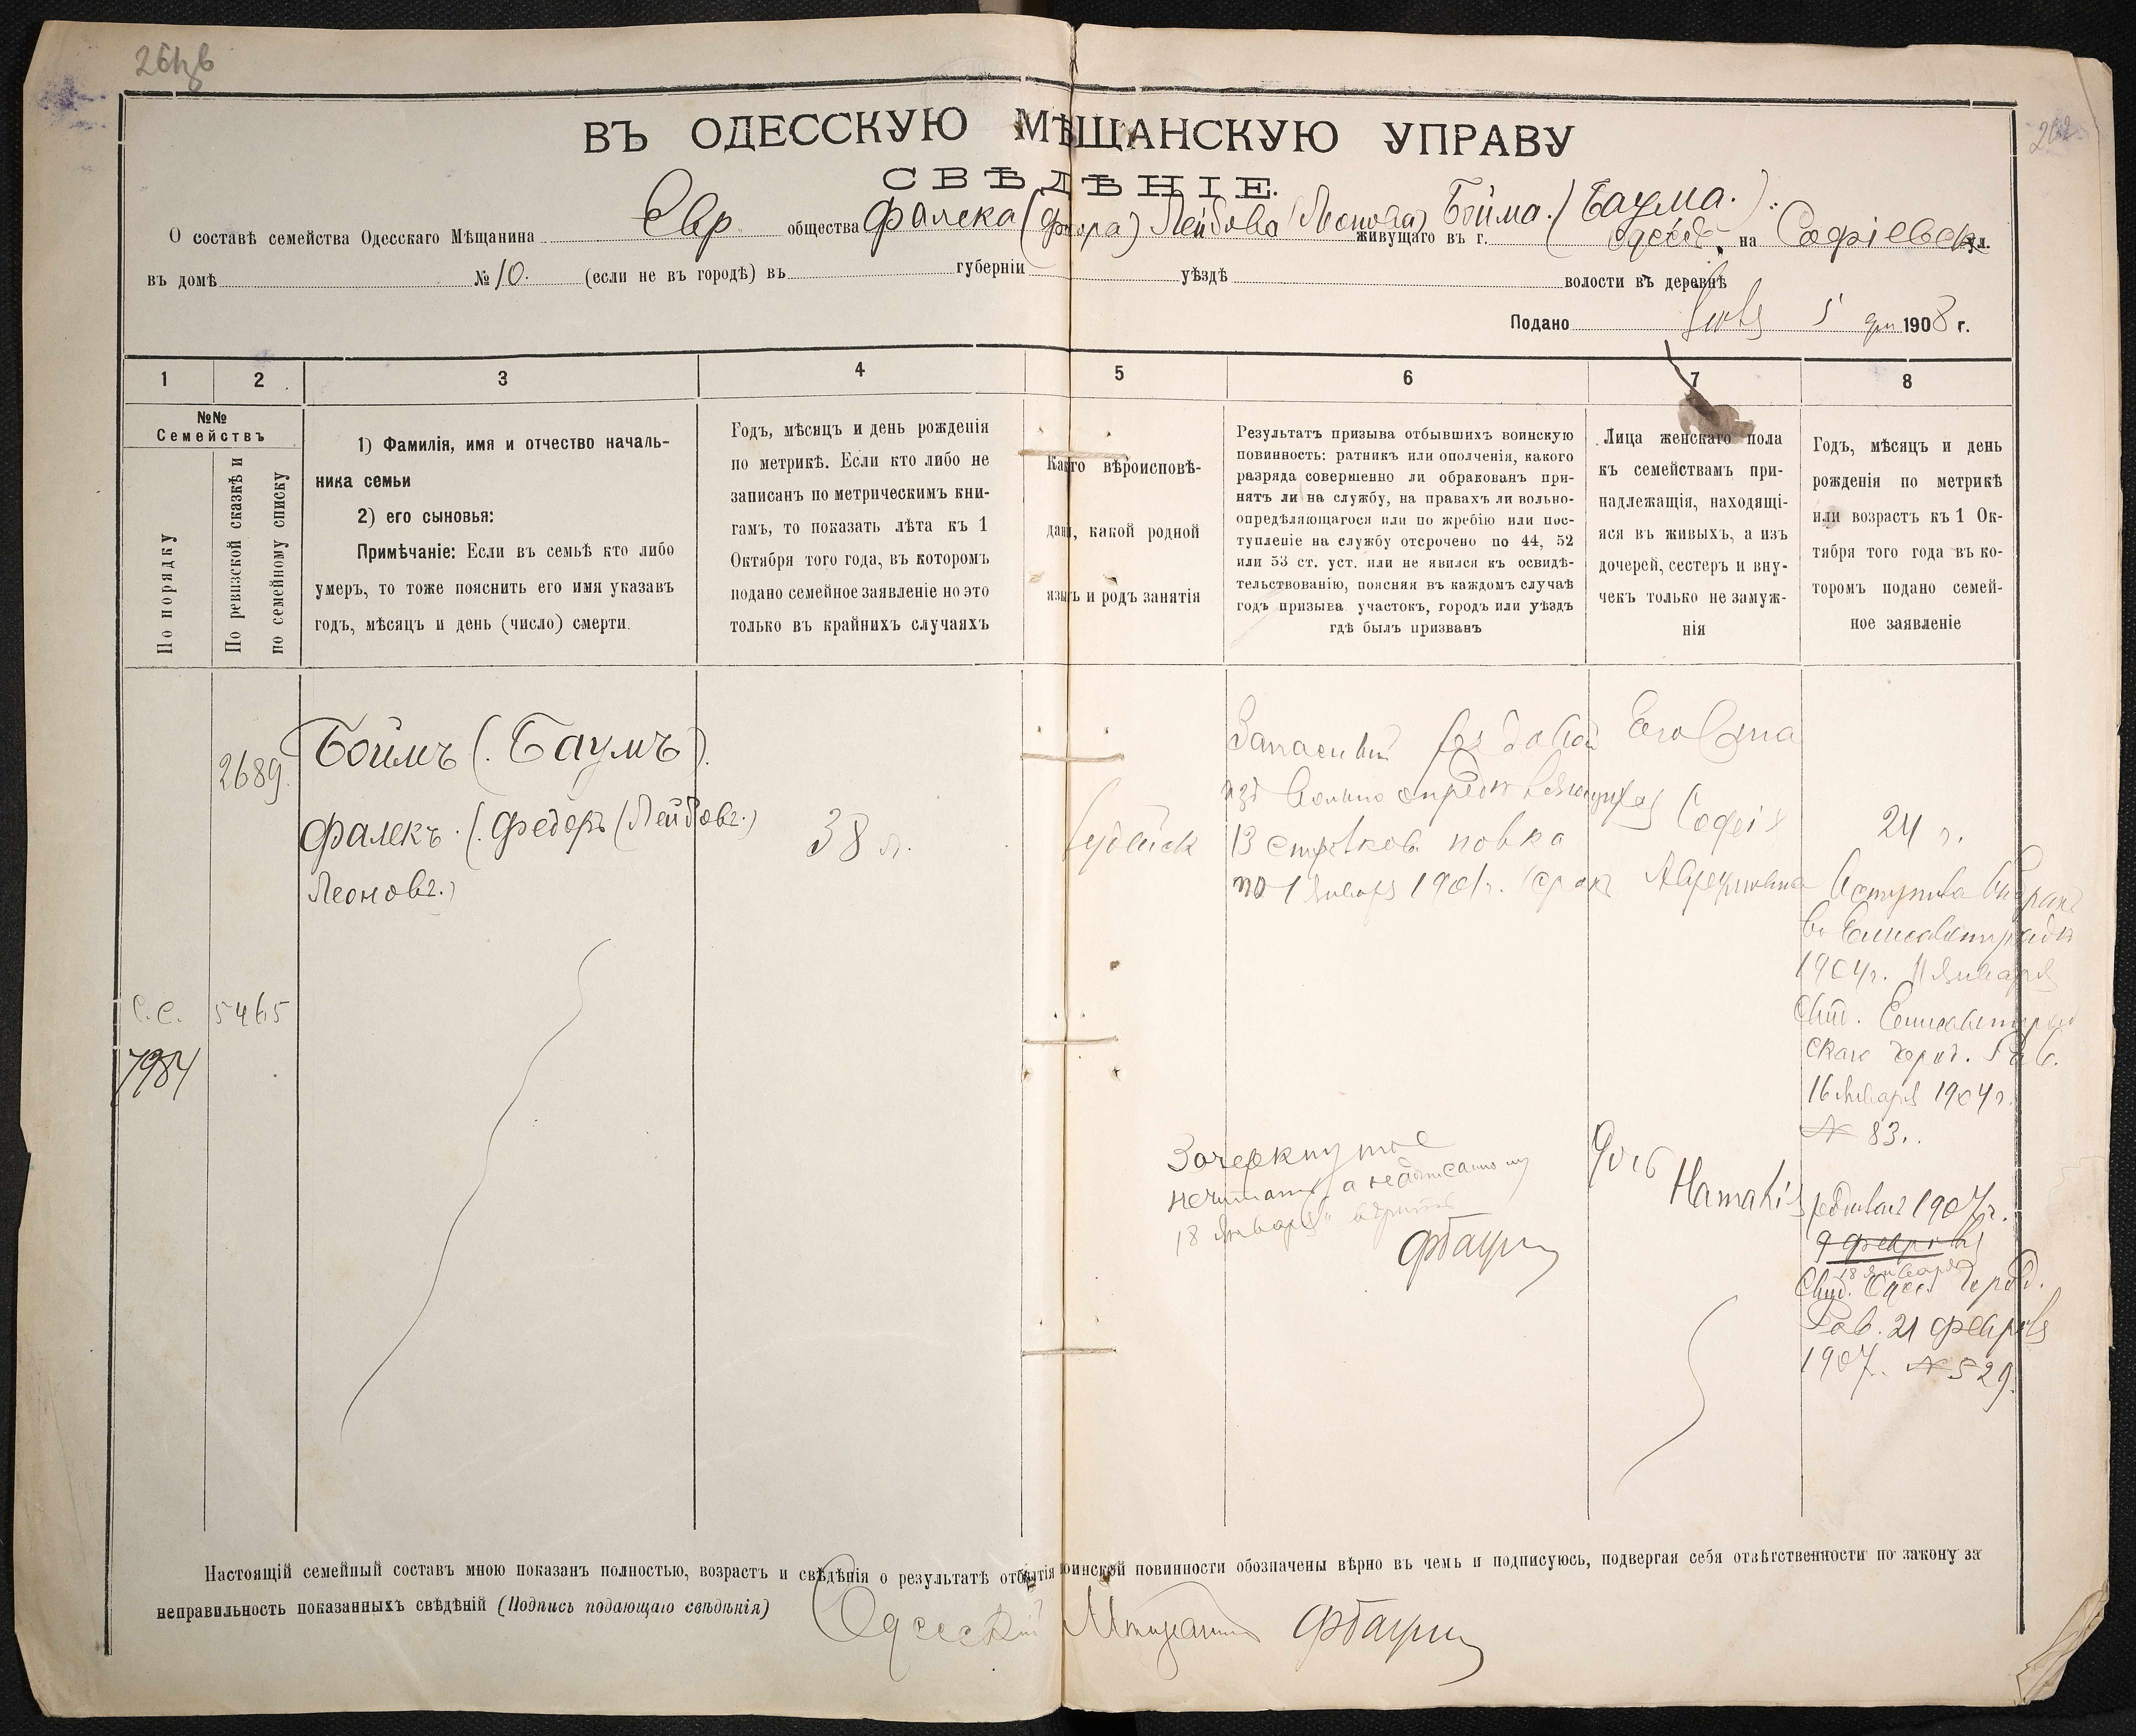 ВЪ ОДЕССКУЮ МѢЩАНСКУЮ УПРАВУ
СВѢДѢНІЕ.
О составѣ семейства Одесскаго Мѣщанина Евр. общества Фалека (Федора) Лейбова (Леонова) Бойма. (Баума.) живущаго въ г. Одессѣ, на Софіевск ул.
въ домѣ № 10. (если не въ городѣ) въ губерніи уѣздѣ волости въ деревнѣ
Подано 5 1908 г.
1 2 3 4 5 6 7 8
№№
Семействъ
По порядку
По ревизской сказкѣ и
по семейному списку
1) Фамилія, имя и отчество началь-
ника семьи
2) его сыновья:
Примѣчаніе: Если въ семьѣ кто либо
умеръ, то тоже пояснить его имя указавъ
годъ, мѣсяцъ и день (число) смерти.
Годъ, мѣсяцъ и день рожденія
по метрикѣ. Если кто либо не
записанъ по метрическимъ кни-
гамъ, то показать лѣта къ 1
Октября того года, въ которомъ
подано семейное заявленіе но это
только въ крайнихъ случаяхъ
Какого вѣроисповѣ-
данія, какой родной
языкъ и родъ занятія
Результатъ призыва отбывшихъ воинскую
повинность: ратникъ или ополченія, какого
разряда совершенно ли обракованъ при-
нятъ ли на службу, на правахъ ли вольно-
опредѣляющагося или по жребію или пос-
тупленіе на службу отсрочено по 44, 52
или 53 ст. уст. или не явился къ освидѣ-
тельствованію, поясняя въ каждомъ случаѣ
годъ призыва участокъ, городъ или уѣздъ
гдѣ былъ призванъ
Лица женскаго пола
къ семействамъ при-
надлежащія, находящі-
яся въ живыхъ, а изъ
дочерей, сестеръ и вну-
чекъ только не замуж-
нія
Годъ, мѣсяцъ и день
рожденія по метрикѣ
или возрастъ къ 1 Ок-
тября того года въ ко-
торомъ подано семей-
ное заявленіе
2689.
Боймъ (. Баумъ).
Фалекъ. (. Федоръ (Лейбов.)
Леонов.)
38 л.
Іудейск
Запасный рядовой
изъ вольноопредѣляющихся
13 стрѣлков. полка
по 1 Января 1901 г. срок
Его жена
Софія
Абрамовна
24 г.
Вступила въ бракъ
въ Елисаветградѣ
1904 г. 11 января
Свид. Елисаветград
скаго город. Рав.
16 Января 1904 г.
№ 83.
С.С. 5465
7984
Зачеркнутое
не читать, а надписанному
18 Января" вѣрить
ФБаум
дочь
Наталія
родилась 1907 г.
9 февраля
18 января
Свид. Одес. город.
Рав. 21 февраля
1907. № 529.
Настоящій семейный составъ мною показанъ полностью, возрастъ и свѣдѣнія о результатѣ отбытія воинской повинности обозначены вѣрно въ чемъ и подписуюсь, подвергая себя отвѣтственности по закону за
неправильность показанныхъ свѣдѣній (Подпись подающаго свѣдѣнія) Одесскій Мѣщанинъ ФБаум